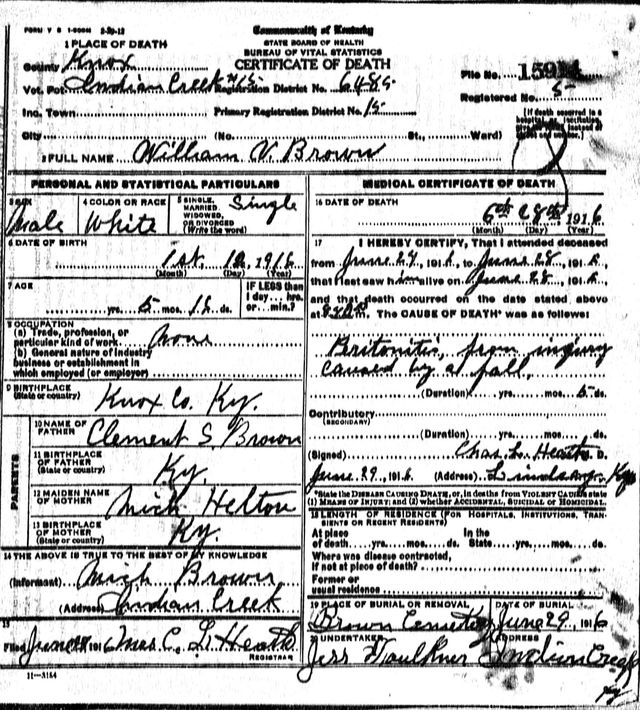 FORM V S 1-500M 2-29-12
Commonwealth of Kentucky
STATE BOARD OF HEALTH
BUREAU OF VITAL STATISTICS
CERTIFICATE OF DEATH
1 PLACE OF DEATH
County Knox
Vot. Pct. Indian Creek #15 Registration District No. 6485
File No. 159
Registered No. 5
Inc. Town Primary Registration District No. 15
City (No. St., Ward)
[If death occurred in a hospital or institution, give its NAME instead of street and number.]
2 FULL NAME William V. Brown
PERSONAL AND STATISTICAL PARTICULARS
3 SEX Male
4 COLOR OR RACE White
5 SINGLE, MARRIED, WIDOWED, OR DIVORCED (Write the word) Single
6 DATE OF BIRTH
1st. 12, 1916
(Month) (Day) (Year)
7 AGE
yrs. 5 mos. 16 ds.
IF LESS than 1 day... hrs. or... min.?
8 OCCUPATION
(a) Trade, profession, or particular kind of work none
(b) General nature of industry business or establishment in which employed (or employer)
9 BIRTHPLACE (State or country) Knox Co. Ky.
PARENTS
10 NAME OF FATHER Clement S. Brown
11 BIRTHPLACE OF FATHER (State or country) Ky.
12 MAIDEN NAME OF MOTHER Mich Helton
13 BIRTHPLACE OF MOTHER (State or country) Ky.
14 THE ABOVE IS TRUE TO THE BEST OF MY KNOWLEDGE
(Informant) Mich Brown
(Address) Indian Creek
15
Filed June 1916 Mrs C. L. Heath
REGISTRAR
11-3184
MEDICAL CERTIFICATE OF DEATH
16 DATE OF DEATH
6th 28th 1916
(Month) (Day) (Year)
17 I HEREBY CERTIFY, That I attended deceased
from June 27, 1916, to June 28, 1916,
that I last saw him alive on June 28, 1916,
and that death occurred on the date stated above
at m. The CAUSE OF DEATH* was as follows:
Britonitis, from injury
caused by a fall,
(Duration) yrs. mos. 5 ds.
Contributory
(SECONDARY)
(Duration) yrs. mos. ds.
(Signed) Chas. L. Heath M. D.
June 29, 1916 (Address) Lindsay, Ky
*State the DISEASE CAUSING DEATH, or, in deaths from VIOLENT CAUSES state (1) MEANS OF INJURY; and (2) whether ACCIDENTAL, SUICIDAL or HOMICIDAL.
18 LENGTH OF RESIDENCE (FOR HOSPITALS, INSTITUTIONS, TRANSIENTS OR RECENT RESIDENTS)
At place of death yrs. mos. ds. In the State yrs. mos. ds.
Where was disease contracted, if not at place of death?
Former or usual residence
19 PLACE OF BURIAL OR REMOVAL Brown Cemetery
DATE OF BURIAL June 29, 1916
20 UNDERTAKER Jess Faulkner
ADDRESS Indian Creek Ky